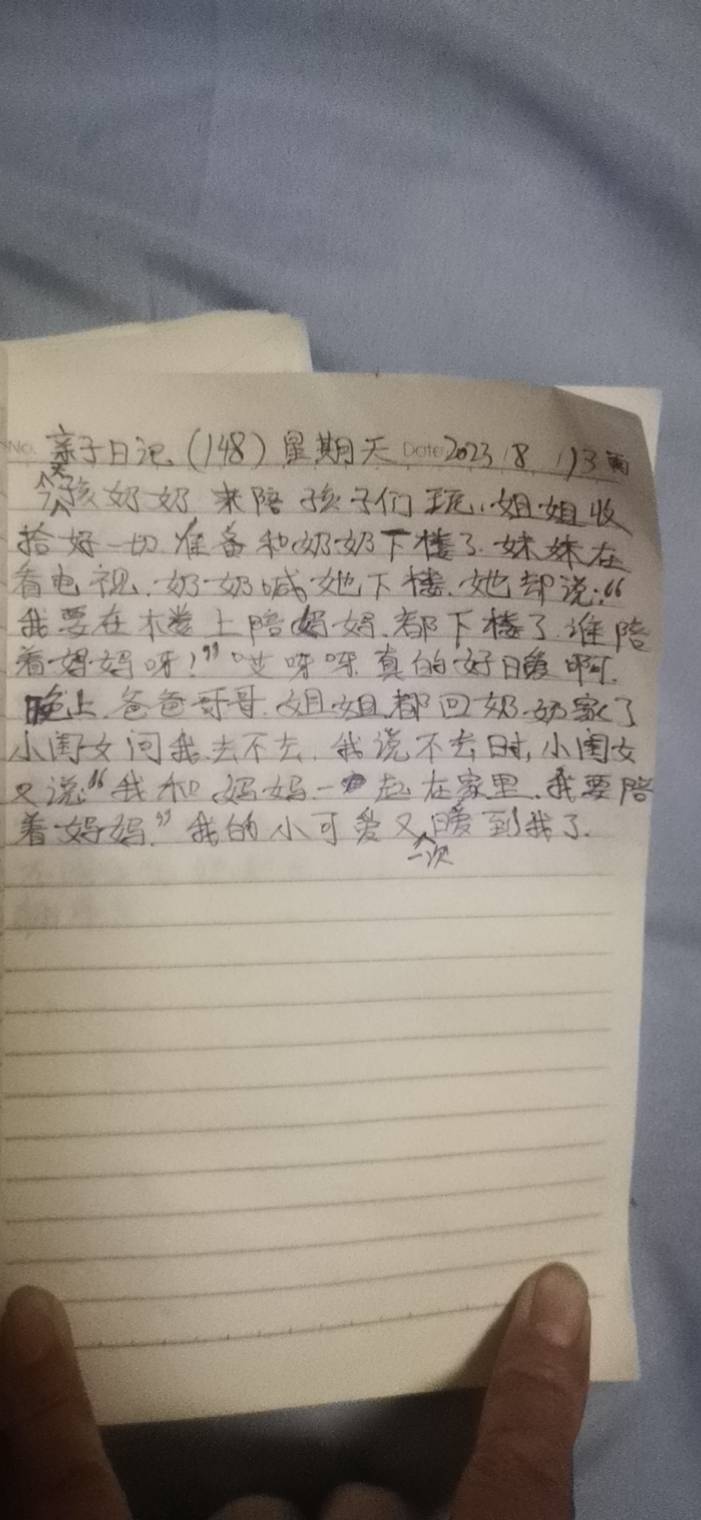 No. 亲子日记(148)星期天 Date 2023 8 13 雨
今天孩奶奶来陪孩子们玩,姐姐收
拾好一切准备和奶奶下楼了.妹妹在
看电视.奶奶喊她下楼.她却说:“
我要在楼上陪妈妈.都下楼了.谁陪
着妈妈呀!”哎呀呀真的好暖啊.
晚上.爸爸哥哥.姐姐.都回奶奶家了
小闺女问我去不去.我说不去时,小闺女
又说“我和妈妈一起在家里.我要陪
着妈妈.”我的小可爱又一次暖到我了.